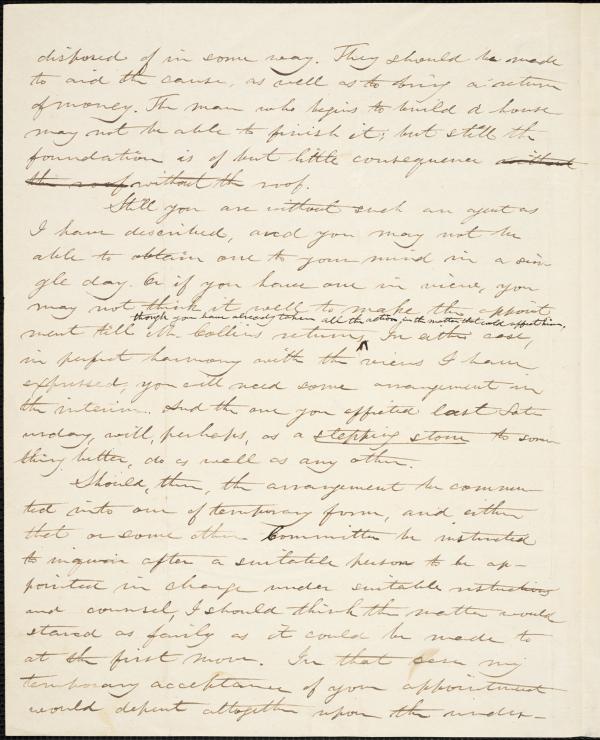 disposed of in some way. They should be made
to aid the cause, as well as to bring a return
of money. The man who begins to build a house
may not be able to finish it; but still the
foundation is of but little consequence without
the roof without the roof.
Still you are without such an agent as
I have described, and you may not be
able to obtain one to your mind in a sin-
gle day. Or if you have one in view, you
may not think it well to make the appoint
though you have already taken all the action in the matter that could affect him,
ment till Mr. Collins returns, In either case
in perfect harmony with the views I have
expressed, you will need some arrangement in
the interim. And the one you effected last Sat-
urday, will, perhaps, as a stepping stone to some
thing better, do as well as any other.
Should, then, the arrangement be commu-
ted into one of temporary form, and either
that or some other Committee be instructed
to inquire after a suitable person to be ap-
pointed in charge under suitable instructions
and counsel, I should think the matter would
stand as fairly as it could be made to
at the first move. In that case my
temporary acceptance of your appointment
would depend altogether upon the under-